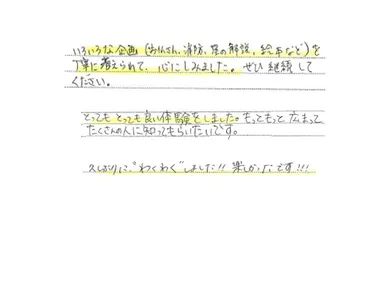 いろいろな企画(おりがみ、消防、星の解説、絵本など)を
丁寧に考えられて、心にしみました。ぜひ継続して
ください。
とっても とっても良い体験をしました。もっともっと広まって
たくさんの人に知ってもらいたいです。
久しぶりに"わくわく"しました!! 楽しかったです!!!